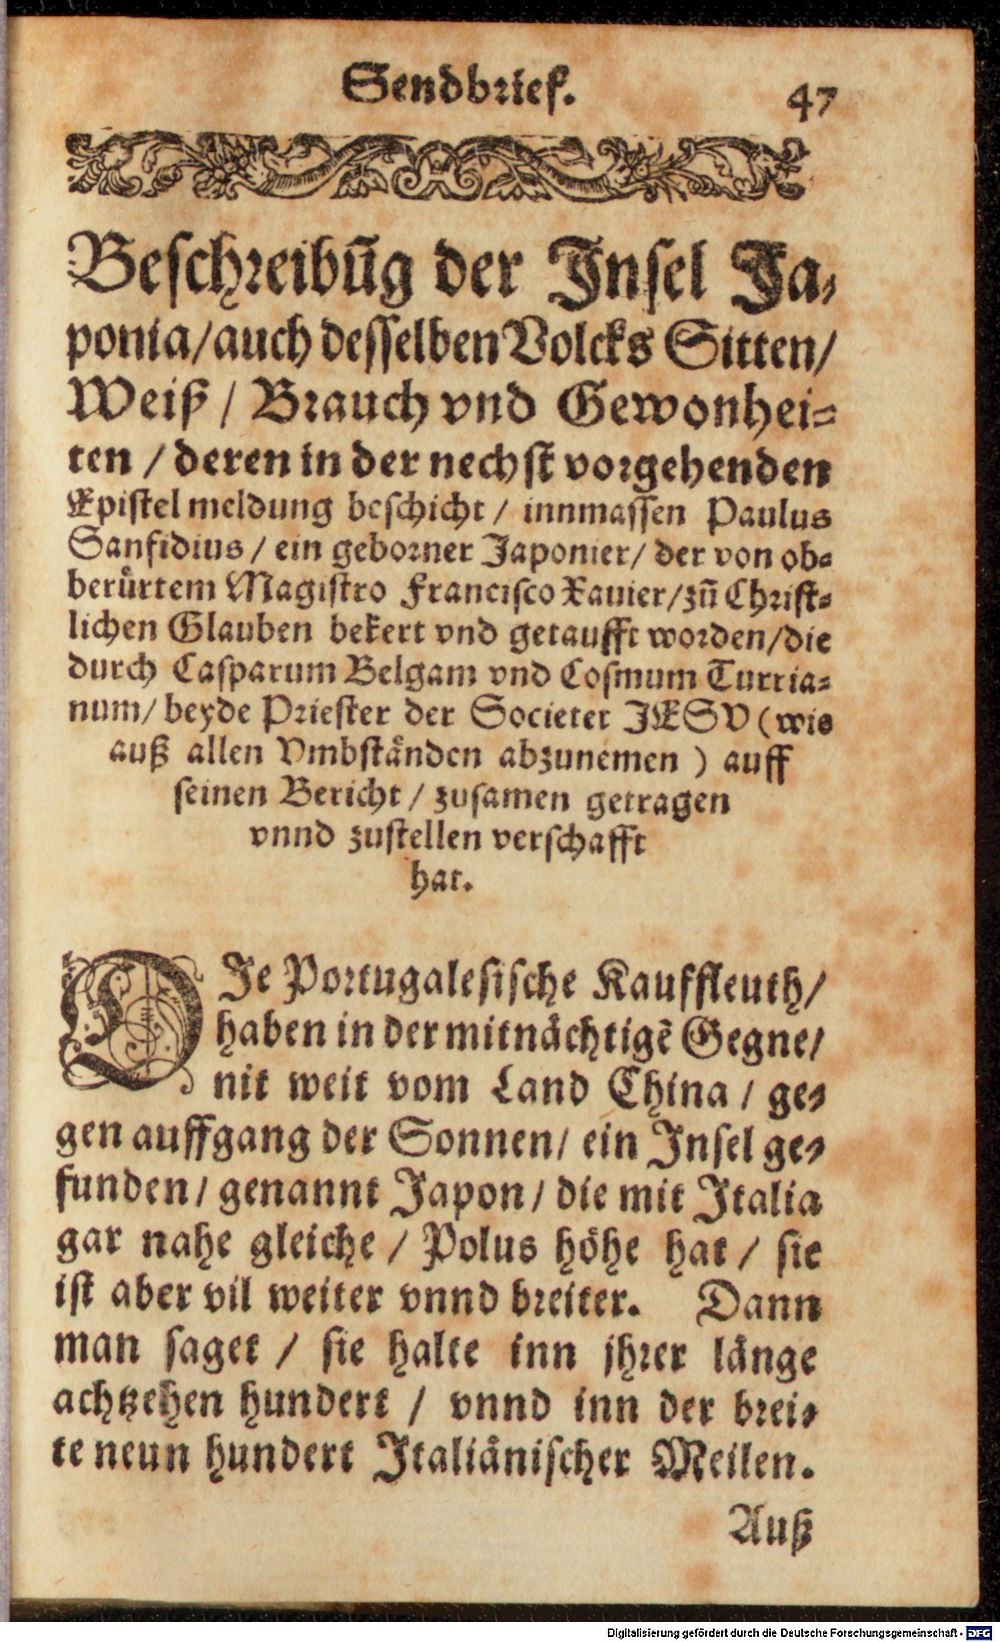 Sendbrief.
47
Beschreibūg der Insel Ja⸗
ponia/auch desselben Volcks Sitten/
Weiß / Brauch vnd Gewonhei⸗
ten / deren in der nechst vorgehenden
Epistel meldung beschicht / innmassen Paulus
Sanfidius / ein geborner Japonier/ der von ob⸗
berürtem Magistro Francisco Xauier/zū Christ⸗
lichen Glauben bekert vnd getaufft worden/die
durch Casparum Belgam vnd Cosmum Turria⸗
num/ beyde Priester der Societet JESV (wie
auß allen Vmbständen abzunemen ) auff
seinen Bericht / zusamen getragen
vnnd zustellen verschafft
hat.
DJe Portugalesische Kauffleuth/
haben in der mitnächtigē Gegne/
nit weit vom Land China / ge⸗
gen auffgang der Sonnen/ ein Insel ge⸗
funden/ genannt Japon/ die mit Italia
gar nahe gleiche / Polus höhe hat / sie
ist aber vil weiter vnnd breiter. Dann
man saget / sie halte inn jhrer länge
achtzehen hundert / vnnd inn der brei⸗
te neun hundert Italiänischer Meilen.
Auß
Digitalisierung gefördert durch die Deutsche Forschungsgemeinschaft - DFG